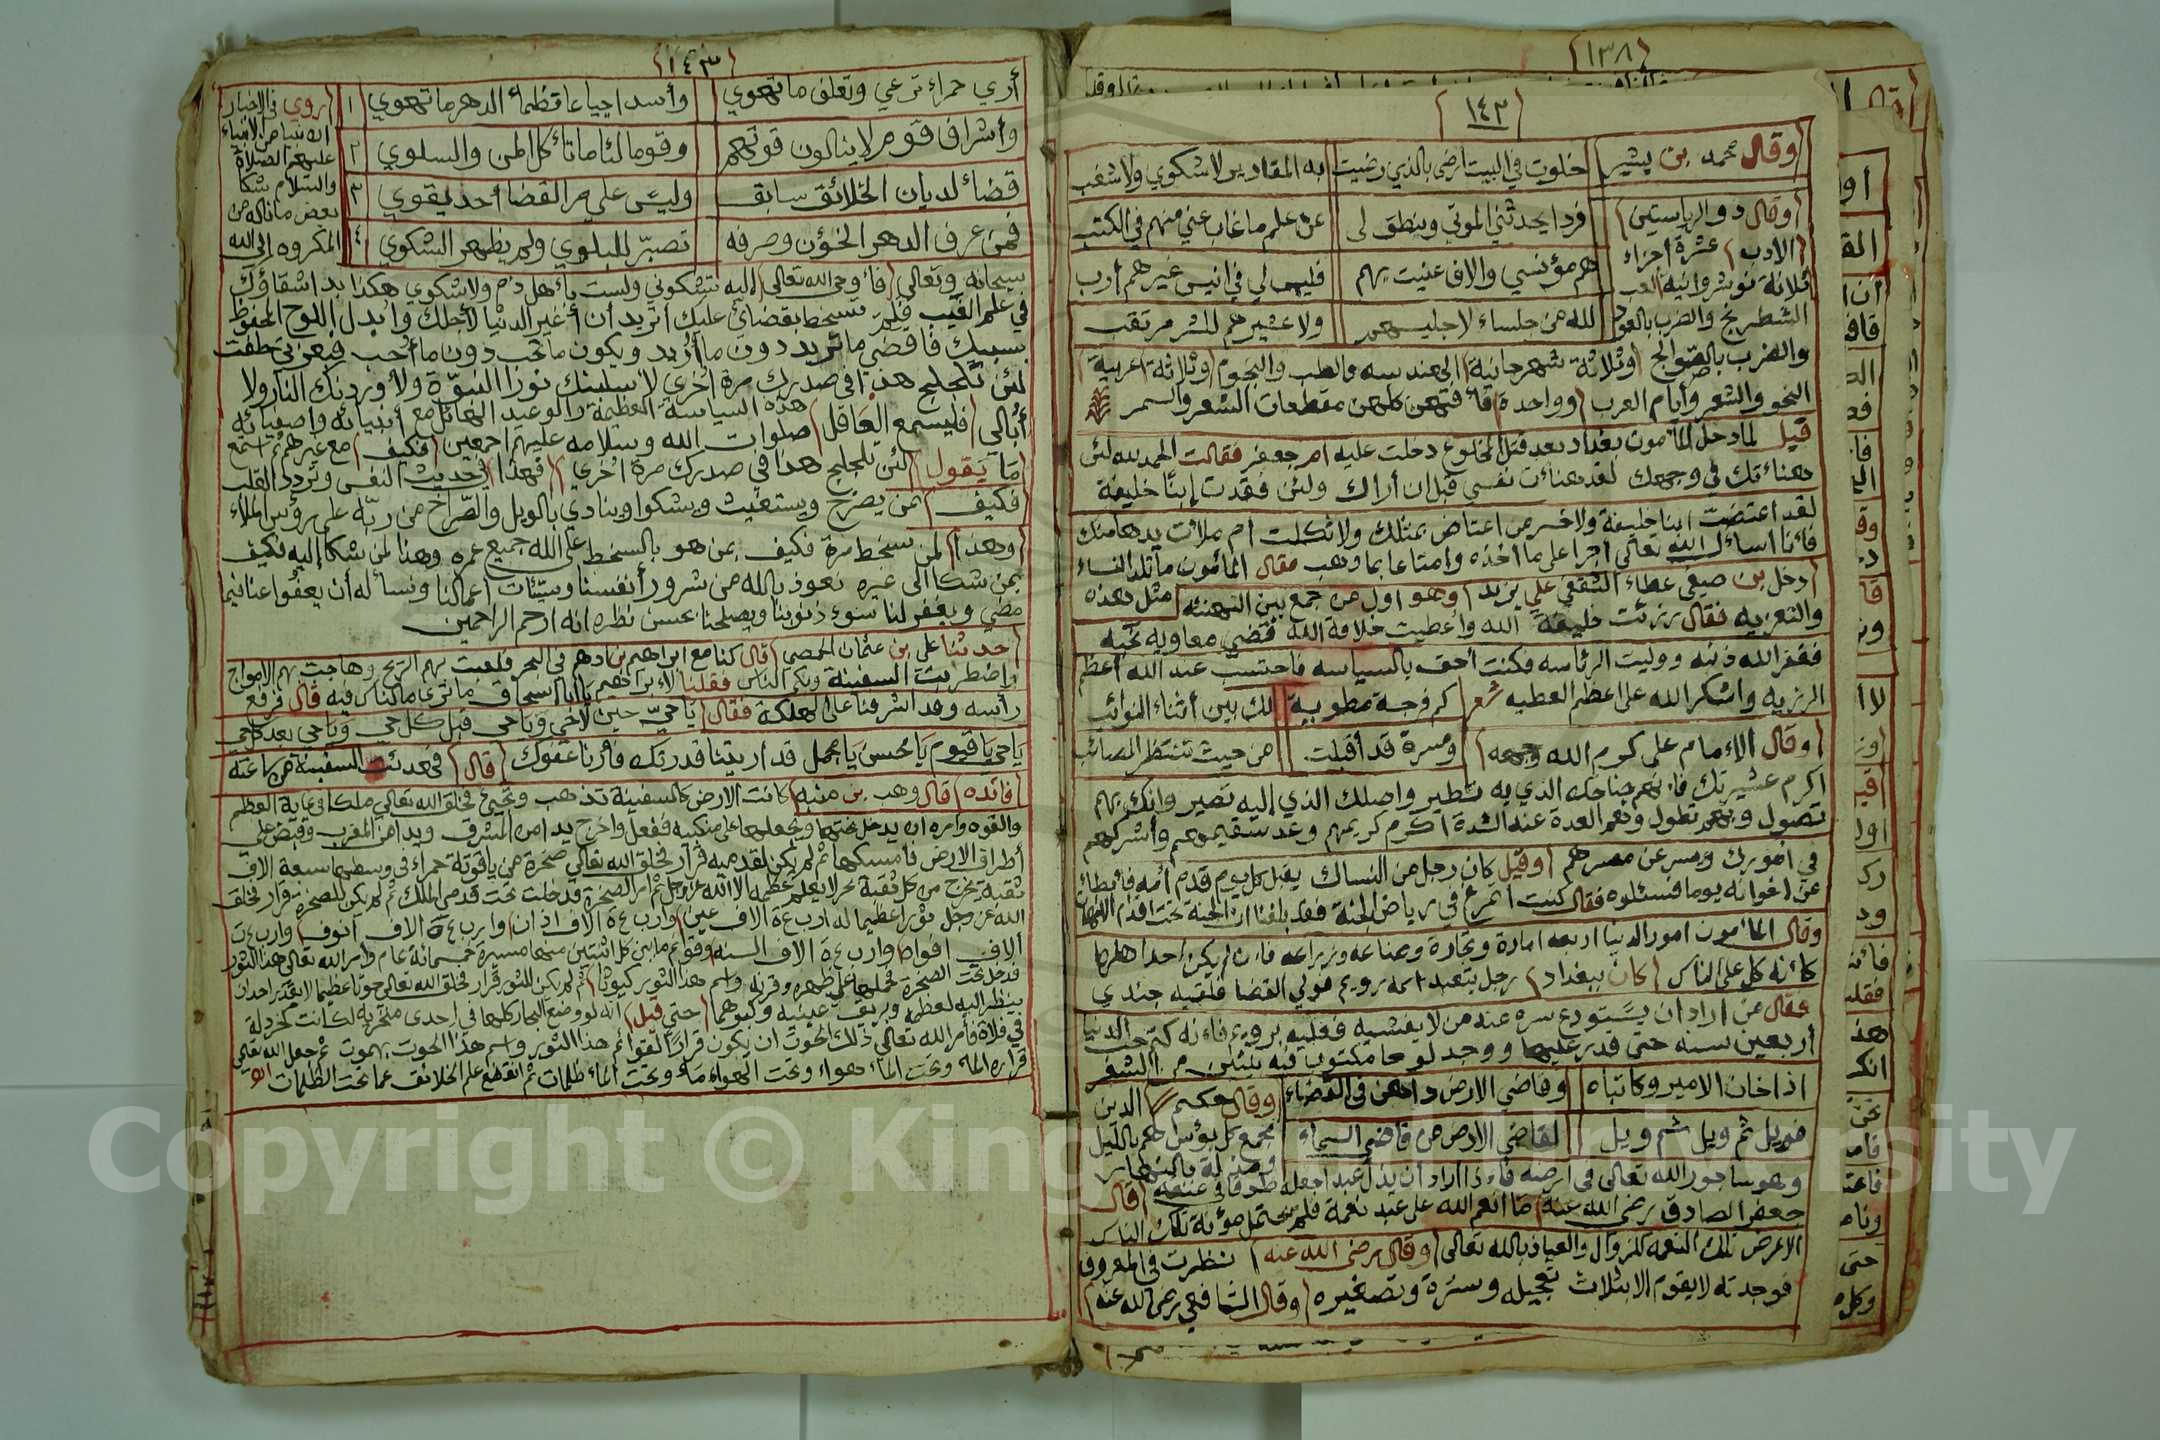 (١٣٨)
(١٤٢)
وقال محمد بن يشير
خلوت في البيت أرضى بالذي رضيت
به المقادير لا شكوي ولا شغب
فردا يحدثني الموتى وينطق لى
عن علم ما غاب عني منهم في الكتب
هم مؤنسي والاف عنيت بهم
فليس لي في انيس غيرهم أرب
لله من جلساء لا جليسهم
ولا عشيرهم للشر مرتقب
وقال ذو الرياستين
(الادب) عشرة اجزاء
ثلاثة نوشروانيه لعب
الشطرنج والضرب بالعود
والضرب بالصوالج (وثلاثة شهرجانية) الهندسه والطب والنجوم (وثلاثة عربية)
النحو والشعر وأيام العرب (وواحدة) فاقتهن كلهن مقطعات الشعر والسمر
قيل لما دخل المأمون بغداد بعد قتل المخلوع دخلت عليه ام جعفر فقالت الحمد لله لئن
هنائتك في وجهك لقد هنائت نفسي قبل ان أراك ولئن فقدت إبنًا خليفة
لقد اعتضت ابنا خليفة ولا خسر من اعتاض بمثلك ولا ثكلت ام ملائت يدها منك
فأنا أسائل الله تعالى اجرا على ما اخذه وامتاعا بما وهب فقال المأمون ما تلد النساء
مثل هذه
دخل بن صيفي عطاء الثقفي علي يزيد (وهو اول من جمع بين التهنئه
والتعزيه فقال رزئت خليفة الله واعطيت خلافة الله قضي معاويه نحبه
فغفر الله ذنبه ووليت الرئاسه فكنت أحق بالسياسه فاحتسب عند الله أعظم
الرزيه واشكر الله على اعظم العطيه شعر
كم فرجة مطويه
لك بين أثناء النوائب
ومسرة قد أقبلت
من حيث تنتظر المصائب
(وقال الإمام على كرم الله وجهه)
اكرم عشيرتك فانهم جناحك الذي به تطير واصلك الذي إليه تصير وانك بهم
تصول وبهم تطول وهم العدة عند الشدة اكرم كريمهم وعد سقيمهم وأشركهم
في امورك ويسر عن معسرهم (وقيل كان رجل من النساك يقبل كل يوم قدم أمه فأبطاء
عن اخوانه يوما فسئلوه فقال كنت اتمرغ في رياض الجنة فقد بلغنا ان الجنة تحت اقدام الامهات
وقال المأمون امور الدنيا اربعه امارة وتجارة وصناعه وزراعه فان لم يكن احد اهلها
كانه كل على الناس (كان ببغداد) رجل يتعبد اسمه رويم فولي القضا فلقيه جندي
فقال من اراد ان يستودع سره عند من لا يفشيه فعليه برويم فانه كتم حب الدنيا
أربعين سنه حتى قدر عليها ووجد لوحا مكتوب فيه بيتين من الشعر
اذا خان الامير وكاتباه
وقاضي الارض داهن في القضاء
فويل ثم ويل ثم ويل
لقاضي الارض من قاضي السماء
وقال حكيم الدين
يجمع كل بؤس هم بالليل
ومذلة بالنهار
وهو ساجور الله تعالى في ارضه فاذا اراد ان يذل عبدا جعله طوقا في عنقه (قال
جعفر الصادق رضي الله عنه) ما انعم الله على عبد نعمة فلم يحتمل مؤنة تلك الناس
الا عرض تلك النعمه للزوال والعياذ بالله تعالى (وقال رضي الله عنه) نظرت في المعروف
فوجدته لا يقوم الا بثلاث تعجيله وستره وتصغيره (وقال الشافعي رضى الله عنه)
(١٤٣)
أري حمراء ترعي وتعلف ما تهوي
وأسدا جياعا تظمأ الدهر ما تهوي
١
وأشراف قوم لا ينالون قوتهم
وقوما لئاما تأكل المن والسلوي
٢
قضاء لديان الخلائق سابق
وليس علي مر القضا أحد يقوي
٣
فمن عرف الدهر الخؤن وصرفه
تصبر للبلوي ولم يظهر الشكوي
٤
(روي في الاخبار
ان نبيا من الانبياء
عليهم الصلاة
والسلام شكا
بعض ما ناله من
المكروه إلى الله
سبحانه وتعالى (فأوحى الله تعالى) اليه تشكوني ولست بأهل ذم ولا شكوي هكذا بدا شقاؤك
في علم الغيب فلم تسخط بقضائي عليك أتريد أن أغير الدنيا لأجلك وابدل اللوح المحفوظ
بسببك فاقضي ما تريد دون ما أريد ويكون ما تحب دون ما أحب فبعزتي حلفت
لئن تلجلج هذا في صدرك مرة أخري لأسلبنك نورا النبوة ولأوردنك النار ولا
أبالي (فليسمع العاقل) هذه السياسة العظيمة والوعيد الهائل مع أنبيائه واصفيائه
صلوات الله وسلامه عليهم اجمعين (فكيف) مع غيرهم ثم استمع
ما يقول (لئن تلجلج هذا في صدرك مرة اخري) (فهذا) حديث النفس وتردد القلب
(فكيف) بمن يصرخ ويستغيث ويشكوا وينادي بالويل والصراخ من ربه على رؤس الملاء
(وهذا) لمن سخط مرة فكيف بمن هو بالسخط على الله جميع عمره وهذا لمن شكا إليه فكيف
بمن شكا الى غيره نعوذ بالله من شرور أنفسنا وسيئات اعمالنا ونسأله أن يعفوا عنا فيما
مضي ويغفر لنا سوء ذنوبنا ويصلحنا بحسن نظره انه ارحم الراحمين
حدثنا على بن عثمان الحمصي (قال) كنا مع ابراهيم بن ادهم في البحر فلعبت بهم الريح وهاجت بهم الامواج
واضطربت السفينة وبكى الناس فقلنا لابراهيم يا أبا اسحاق ما ترى ما الناس فيه قال فرفع
رأسه وقد اشرفنا على الهلكة فقال (يا حيّ حين لا حي ويا حي قبل كل حي ويا حي بعد كل حي
يا حي يا قيوم يا محسن يا مجمل قد اريتنا قدرتك فأرنا عفوك (قال) فهدئت السفينة من ساعته
(فائده) قال وهب بن منبه) كانت الارض كالسفينة تذهب وتجيئ فخلق الله تعالي ملكا في نهاية العظم
والقوه وامره ان يدخل تحتها ويجعلها على منكبيه ففعل واخرج يدا من المشرق ويدا من المغرب وقبض على
أطراف الارض فامسكها ثم لم يكن لقدميه قرار فخلق الله تعالي صخرة من ياقوتة حمراء في وسطها سبعة الاف
ثقبة يخرج من كل ثقبة بحر لا يعلم عظمه الا الله عز وجل ثم امر الصخرة فدخلت تحت قدمي الملك ثم لم يكن للصخرة قرار فخلق
الله عز وجل ثورا عظيما له أربعة الاف عين وأربعة الاف اذان وأربعة الاف أنوف وأربعة
ألاف افواه وأربعة الاف السنه وقوائم ما بين كل اثنتين منها مسيرة خمسمائة عام وامر الله تعالى هذا الثور
فدخل تحت الصخرة فحملها على ظهره وقرنه واسم هذا الثور كيوثا ثم لم يكن للثور قرار فخلق الله تعالى حوتا عظيما لا يقدر احد ان
ينظر اليه لعظمه وبريق عينيه وكبرهما (حتي قيل) انه لو وضع البحار كلها في احدى منخريه لكانت كخردلة
في فلاة فأمر الله تعالي ذلك الحوت ان يكون قرارا لقوائم هذا الثور واسم هذا الحوت بهموت ثم جعل الله تعالي
قراره الماء وتحت الماء هواء وتحت الهواء ماء وتحت الماء ظلمات ثم انقطع علم الخلائق عما تحت الظلمات اه
Copyright © King Saud University